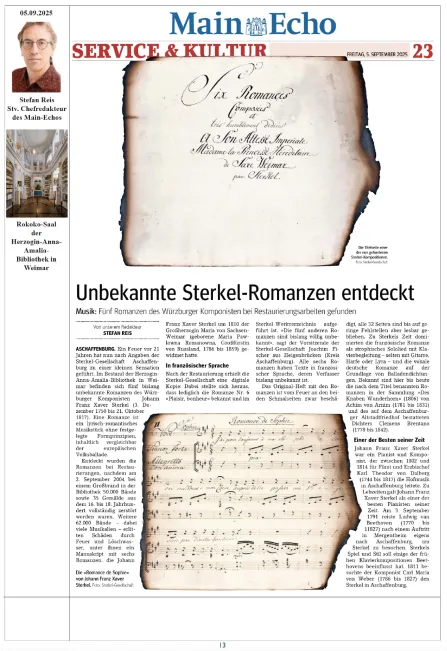 05.09.2025
Stefan Reis
Stv. Chefredakteur
des Main-Echos
Rokoko-Saal
der
Herzogin-Anna-
Amalia-
Bibliothek in
Weimar
Main Echo
SERVICE & KULTUR
FREITAG, 5. SEPTEMBER 2025 23
Six Romances
Composées et
très humblement dediées
A Son Altesse Imperiale
Madame la Princesse Hereditaire
de Saxe Weimar
par Sterkel.
Die Titelseite einer
der vor gefundenen
Sterkel-Kompositionen.
Foto: Sterkel-Gesellschaft
Unbekannte Sterkel-Romanzen entdeckt
Musik: Fünf Romanzen des Würzburger Komponisten bei Restaurierungsarbeiten gefunden
Von unserem Redakteur
STEFAN REIS
ASCHAFFENBURG. Ein Feuer vor 21
Jahren hat nun nach Angaben der
Sterkel-Gesellschaft Aschaffen-
burg zu einer kleinen Sensation
geführt. Im Bestand der Herzog-
Anna-Amalia-Bibliothek in Wei-
mar befinden sich fünf bislang
unbekannte Romanzen des Würz-
burger Komponisten Johann
Franz Xaver Sterkel (3. De-
zember 1750 bis 21. Oktober
1817). Eine Romanze ist
ein lyrisch-romantisches
Musikstück ohne festge-
legtes Formprinzipien,
inhaltlich vergleichbar
der europäischen
Volksballade.
Entdeckt wurden die
Romanzen bei Restau-
rierungen, nachdem am
2. September 2004 bei
einem Großbrand in der
Bibliothek 50.000 Bände
sowie 35 Gemälde aus
dem 16. bis 18. Jahrhun-
dert vollständig zerstört
worden waren. Weitere
62.000 Bände – dabei
viele Musikalien – erlit-
ten Schäden durch
Feuer und Löschwas-
ser, unter ihnen ein
Manuskript mit sechs
Romanzen, die Johann
Franz Xaver Sterkel um 1810 der
Großherzogin Maria von Sachsen-
Weimar (geborene Maria Paw-
lowna Romanowna, Großfürstin
von Russland, 1786 bis 1859) ge-
widmet hatte.
In französischer Sprache
Nach der Restaurierung erhielt die
Sterkel-Gesellschaft eine digitale
Kopie. Dabei stellte sich heraus,
dass lediglich die Romanze Nr. 6
»Plaisir, bonheur« bekannt und im
Sterkel Werkverzeichnis aufge-
führt ist. »Die fünf anderen Ro-
manzen sind bislang völlig unbe-
kannt«, sagt der Vorsitzende der
Sterkel-Gesellschaft Joachim Fi-
scher aus Heigenbrücken (Kreis
Aschaffenburg). Alle sechs Ro-
manzen haben Texte in französi-
scher Sprache, deren Verfasser
bislang unbekannt ist.
Das Original-Heft mit den Ro-
manzen ist vom Feuer an den bei-
den Schmalseiten zwar beschä-
digt, alle 32 Seiten sind bis auf ge-
ringe Fehlstellen aber lesbar ge-
blieben. Zu Sterkels Zeit domi-
nierten die französische Romanze
als strophisches Sololied mit Kla-
vierbegleitung – selten mit Gitarre,
Harfe oder Lyra – und die vokale
deutsche Romanze auf der
Grundlage von Balladendichtun-
gen. Bekannt sind hier bis heute
die nach dem Titel benannten Ro-
manzen in der Sammlung »Des
Knaben Wunderhorn« (1806) von
Achim von Arnim (1781 bis 1831)
und des auf dem Aschaffenbur-
ger Altstadtfriedhof beerdigten
Dichters Clemens Brentano
(1778 bis 1842).
Einer der Besten seiner Zeit
Johann Franz Xaver Sterkel
war ein Pianist und Kompo-
nist, der zwischen 1802 und
1814 für Fürst und Erzbischof
Karl Theodor von Dalberg
(1744 bis 1817) die Hofmusik
in Aschaffenburg leitete. Zu
Lebzeiten galt Johann Franz
Xaver Sterkel als einer der
besten Pianisten seiner
Zeit. Am 3. September
1791 reiste Ludwig van
Beethoven (1770 bis
1827) nach einem Auftritt
in Mergentheim eigens
nach Aschaffenburg, um
Sterkel zu besuchen. Sterkels
Spiel und Stil soll einige der frü-
hen Klavierkompositionen Beet-
hovens beeinflusst hat. 1811 be-
suchte der Komponist Carl Maria
von Weber (1786 bis 1827) den
Sterkel in Aschaffenburg.
Romance de Sophie
Allegretto
Die »Romance de Sophie«
von Johann Franz Xaver
Sterkel. Foto: Sterkel-Gesellschaft
13